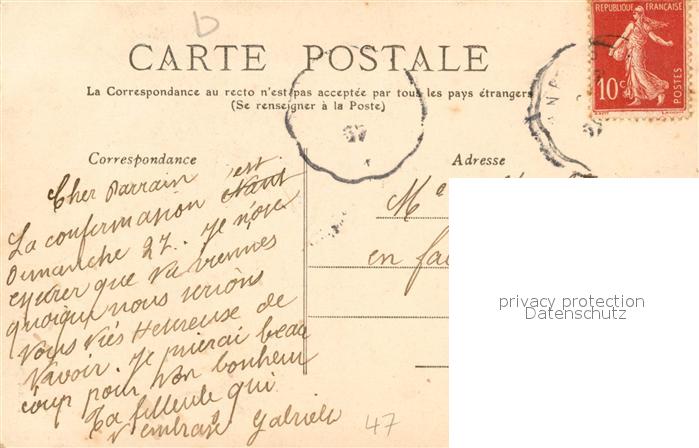 D
REPUBLIQUE FRANÇAISE
10c
POSTES
CARTE POSTALE
La Correspondance au recto n'est pas acceptée par tous les pays étrangers
(Se renseigner à la Poste)
Correspondance
Adresse
Cher Parrain
La confirmation est
Dimanche 27. Je n'ose
espérer que tu viennes
quoique nous serions
tous très Heureuse de
t'avoir. Je prierai beau
coup pour ton bonheur
Ta filleule qui
t'embrasse Gabrielle
M
en
47
privacy protection
Datenschutz